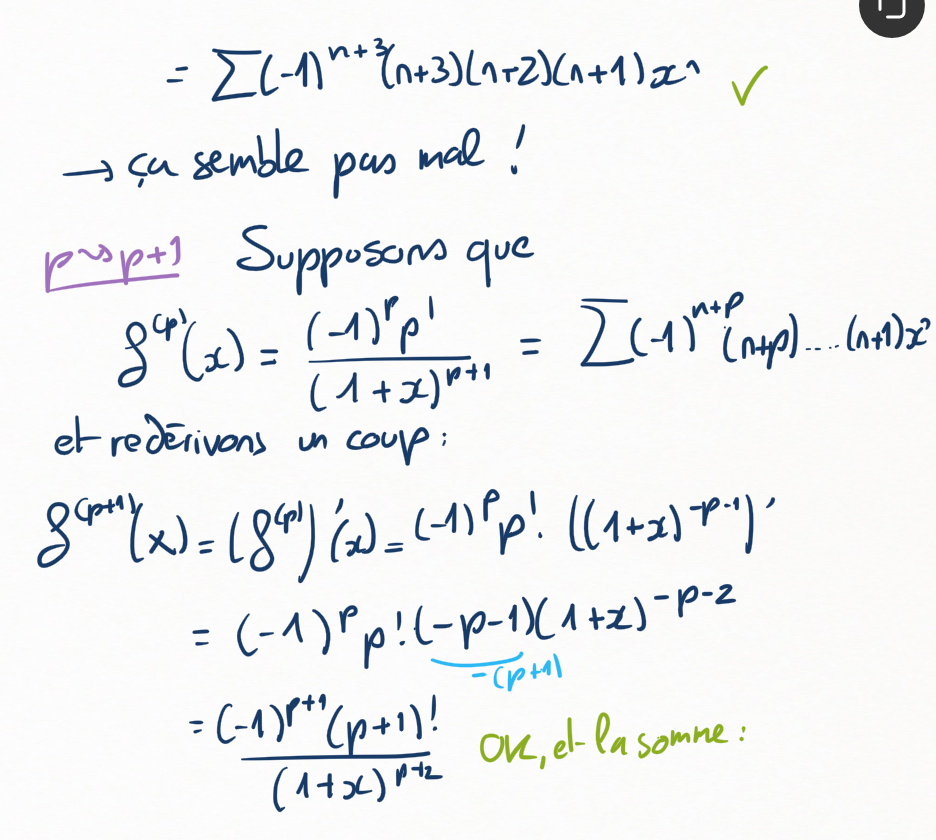 = ∑(-1)^{n+3}(n+3)(n+2)(n+1)x^n ✓
→ ça semble pas mal !
p⤳p+1 Supposons que
f^{(p)}(x) = \frac{(-1)^p p!}{(1+x)^{p+1}} = ∑(-1)^{n+p}(n+p)....(n+1)x^n
et redérivons un coup :
f^{(p+1)}(x) = (f^{(p)})'(x) = (-1)^p p! ((1+x)^{-p-1})'
= (-1)^p p! (-p-1)(1+x)^{-p-2}
-(p+1)
= \frac{(-1)^{p+1}(p+1)!}{(1+x)^{p+2}} OK, et la somme :